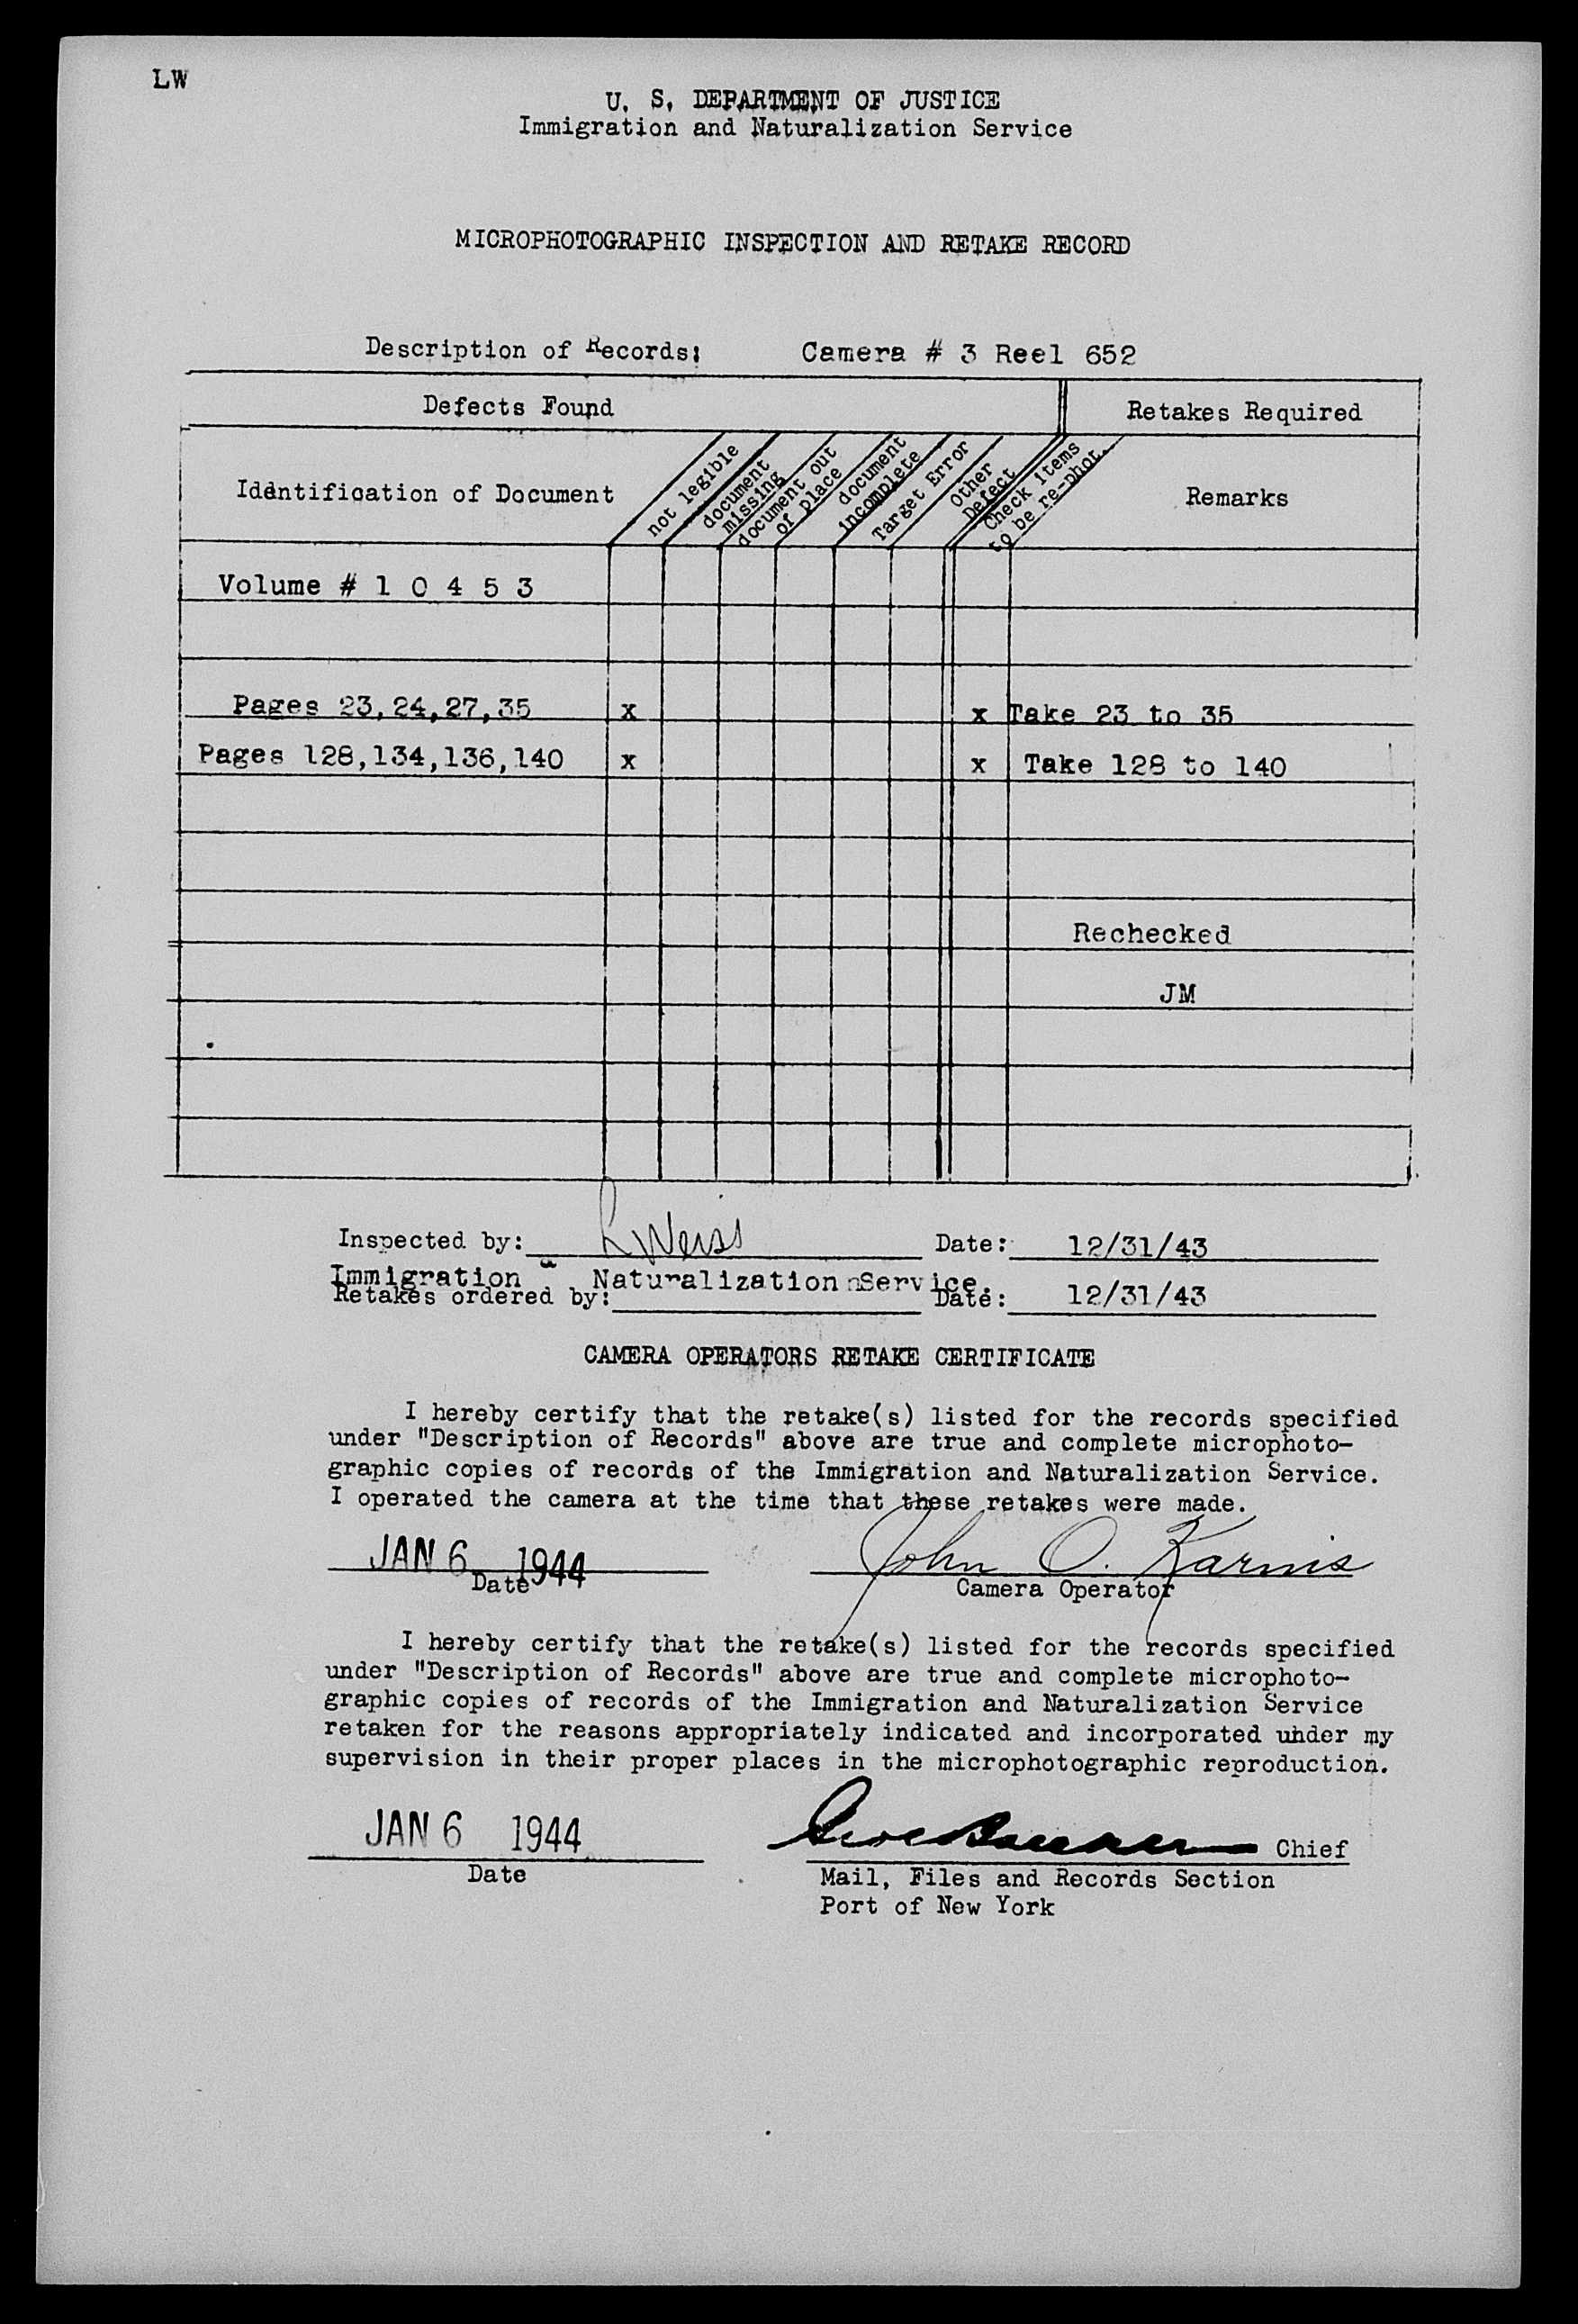 LW
U. S. DEPARTMENT OF JUSTICE
Immigration and Naturalization Service
MICROPHOTOGRAPHIC INSPECTION AND RETAKE RECORD
Description of Records: Camera # 3 Reel 652
Defects Found Retakes Required
Identification of Document not legible document missing document out of place document incomplete Target Error Other Defect Check items to be re-phot. Remarks
Volume # 1 0 4 5 3
Pages 23,24,27,35 x x Take 23 to 35
Pages 128,134,136,140 x x Take 128 to 140
Rechecked
JM
Inspected by: Weiss Date: 12/31/43
Immigration Naturalization Service.
Retakes ordered by: Date: 12/31/43
CAMERA OPERATORS RETAKE CERTIFICATE
I hereby certify that the retake(s) listed for the records specified
under "Description of Records" above are true and complete microphoto-
graphic copies of records of the Immigration and Naturalization Service.
I operated the camera at the time that these retakes were made.
JAN 6 1944 John O. Karnis
Date Camera Operator
I hereby certify that the retake(s) listed for the records specified
under "Description of Records" above are true and complete microphoto-
graphic copies of records of the Immigration and Naturalization Service
retaken for the reasons appropriately indicated and incorporated under my
supervision in their proper places in the microphotographic reproduction.
JAN 6 1944 Chief
Date Mail, Files and Records Section
Port of New York